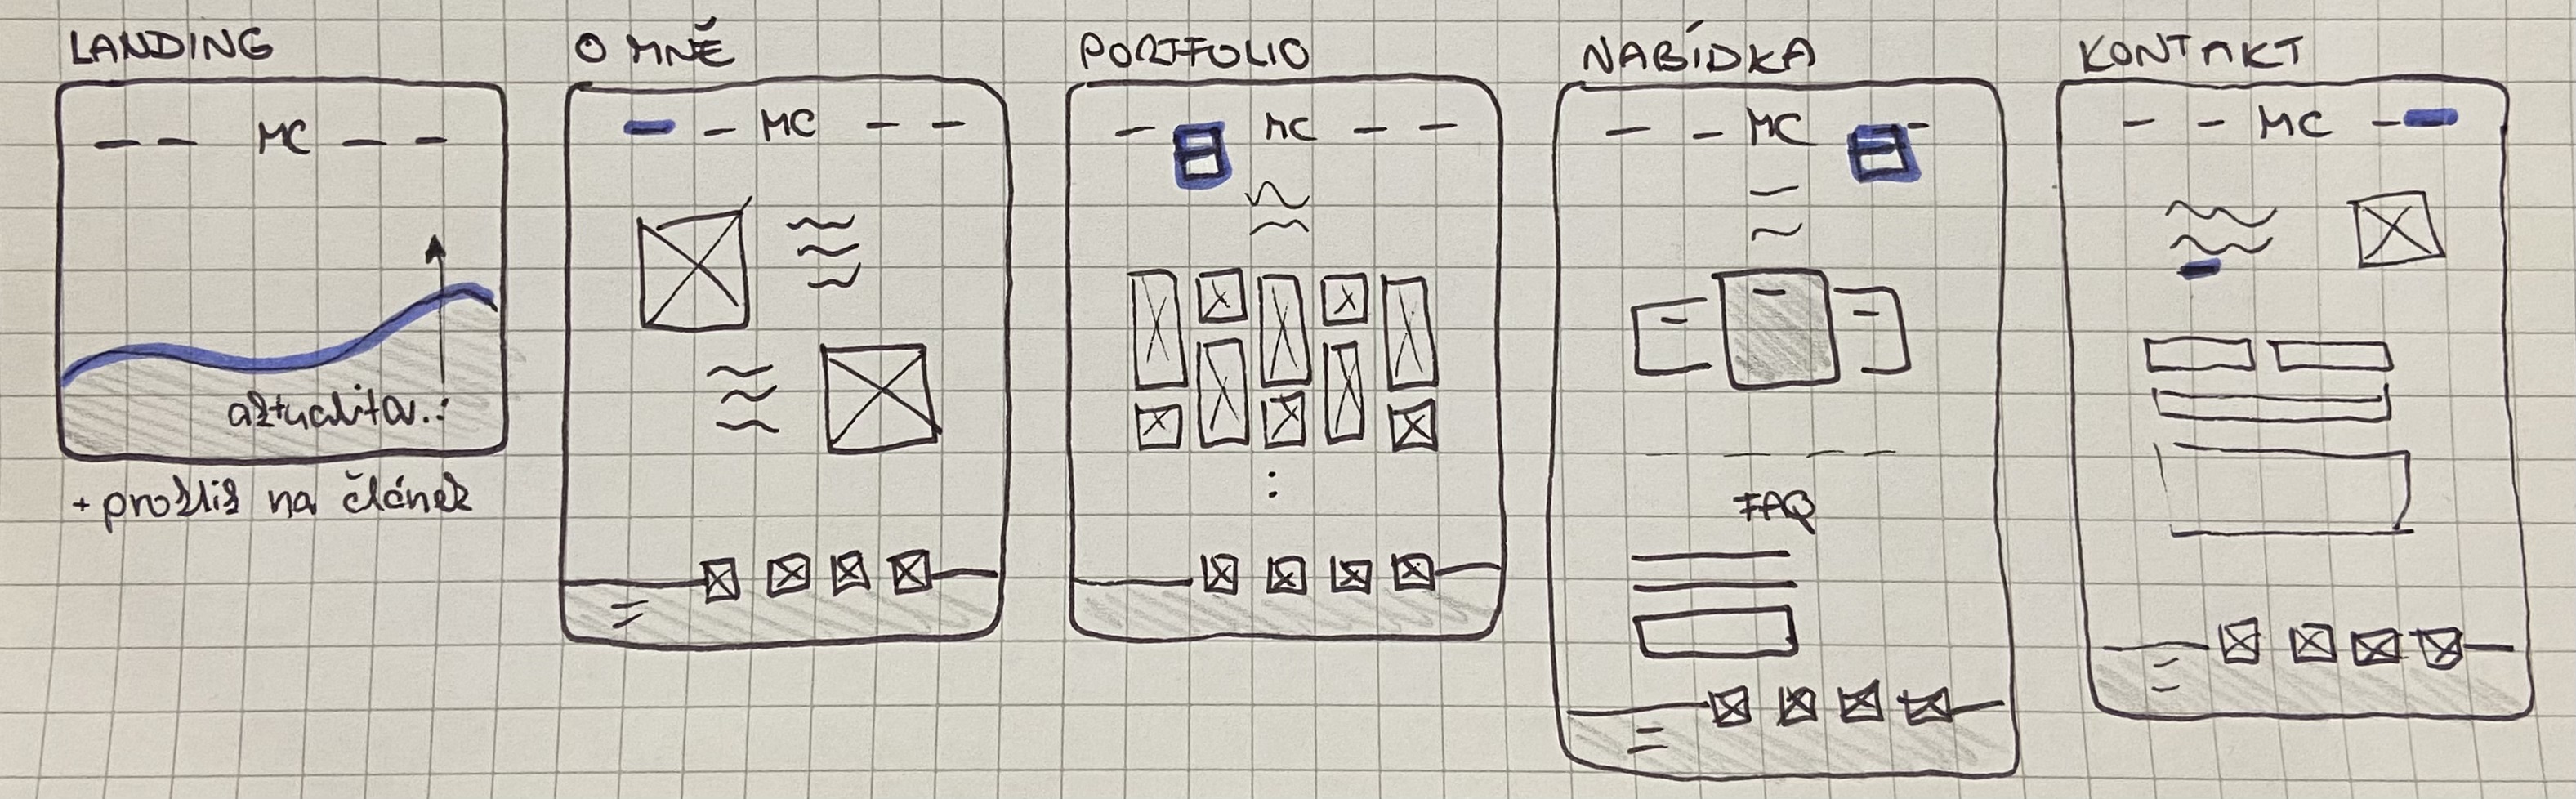 LANDING
MC
aktualita..:
+ proklik na článek
O MNĚ
MC
PORTFOLIO
MC
:
NABÍDKA
MC
FAQ
KONTAKT
MC